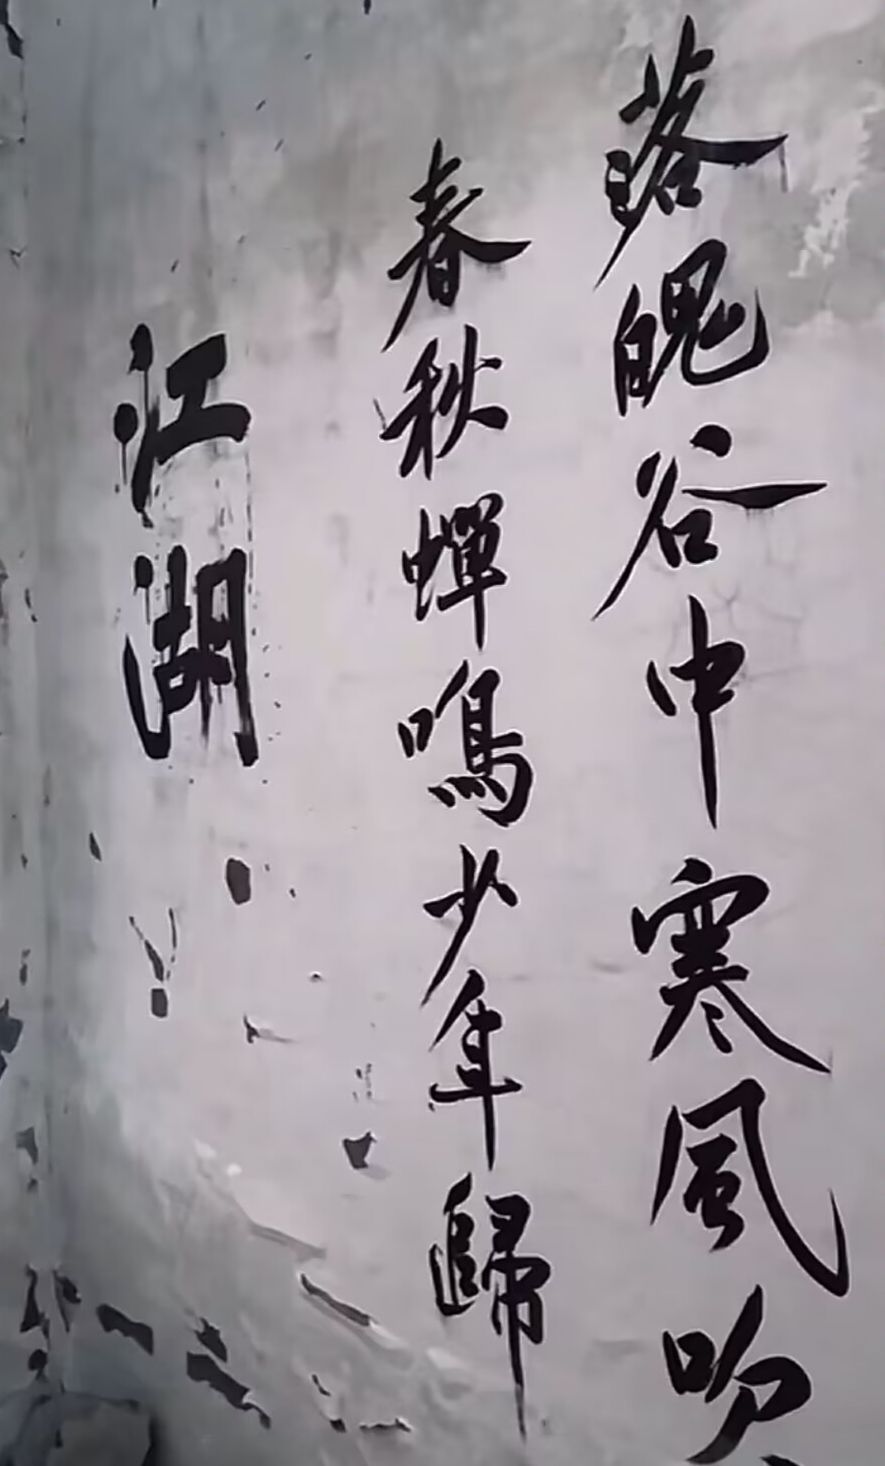 落魄谷中寒風吹
春秋蟬鳴少年歸
江湖